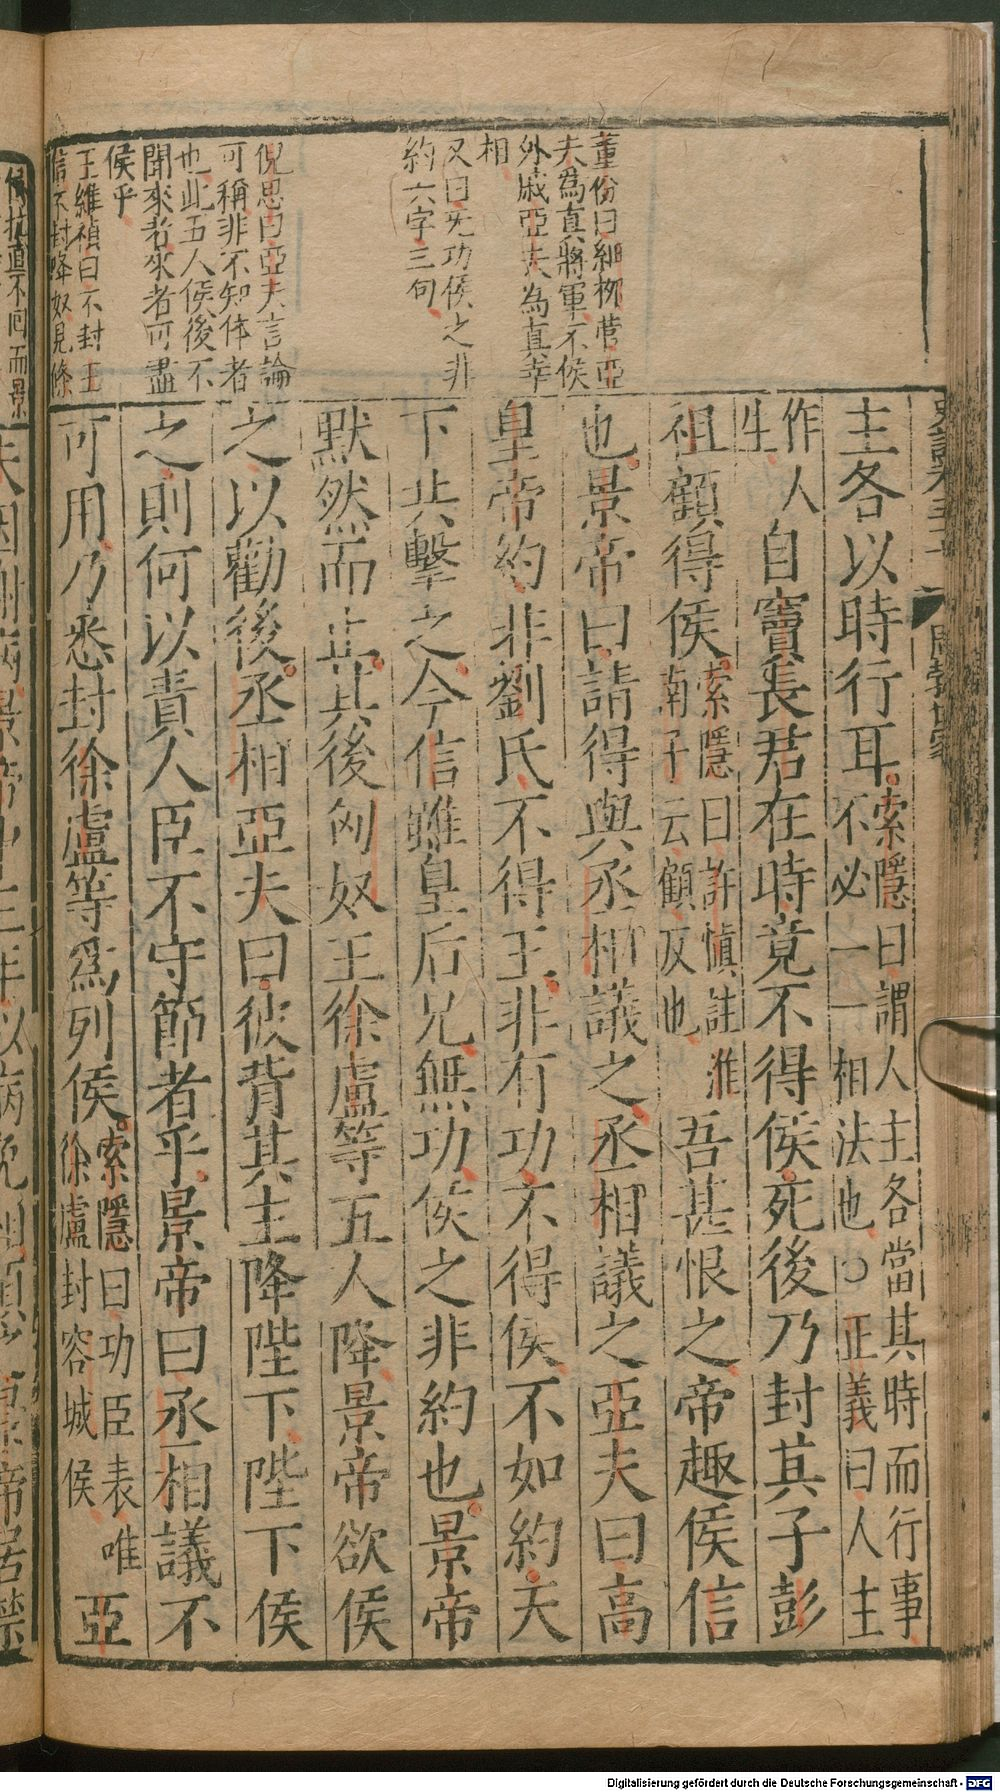 董份曰細柳營亞
夫為真將軍不侯
外戚亞夫為真宰
相
又曰无功侯之非
約六字三句
倪思曰亞夫言論
可稱非不知体者
也此五人侯後不
聞來者來者可盡
侯乎
王維禎曰不封王
信不封降奴見條
主各以時行耳索隱曰謂人主各當其時而行事
不必一一相法也○正義曰人主
作人
生
自竇長君在時竟不得侯死後乃封其子彭
祖顧得侯索隱曰許慎註淮
南子云顧反也
吾甚恨之帝趣侯信
也景帝曰請得與丞相議之丞相議之亞夫曰高
皇帝約非劉氏不得王非有功不得侯不如約天
下共擊之今信雖皇后兄無功侯之非約也景帝
默然而止其後匈奴王徐盧等五人降景帝欲侯
之以勸後丞相亞夫曰彼背其主降陛下陛下侯
之則何以責人臣不守節者乎景帝曰丞相議不
可用乃悉封徐盧等為列侯索隱曰功臣表唯
徐盧封容城侯
亞
Digitalisierung gefördert durch die Deutsche Forschungsgemeinschaft - DFG